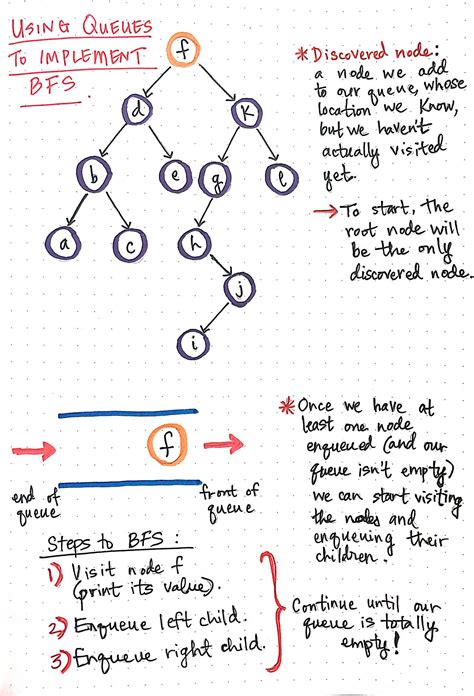 USING QUEUES
TO IMPLEMENT
BFS.
f
d
K
b
e
g
l
a
c
h
j
i
* Discovered node:
a node we add
to our queue, whose
location we know,
but we haven't
actually visited
yet.
→ To start, the
root node will
be the only
discovered node.
f
end of
queue
front of
queue
* Once we have at
least one node
enqueued (and our
queue isn't empty)
we can start visiting
the nodes and
enqueuing their
children.
Steps to BFS:
1) Visit node f
(print its value).
2) Enqueue left child.
3) Enqueue right child.
Continue until our
queue is totally
empty!